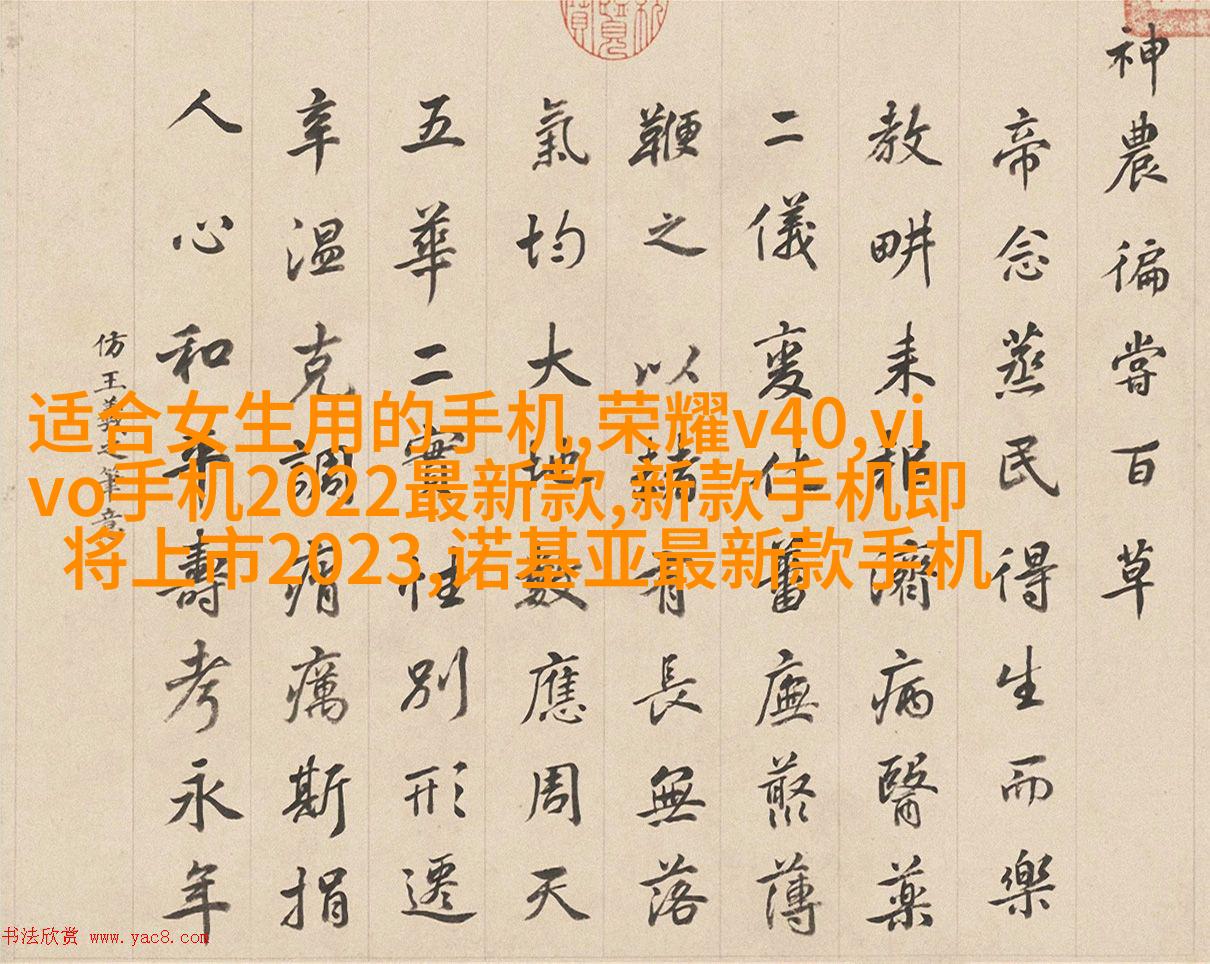 神農徧嘗百草
帝念蒸民得生而樂
教畊耒耜濟病醫藥
二儀變化蕃廡藂薄
鞭之以赭有長無落
氣均大地數應周天
五華二實性別形遷
辛温克調痟癘斯捐
人心和平壽考永年
仿王羲之筆意
适合女生用的手机,荣耀v40,vi
vo手机2022最新款,新款手机即
将上市2023,诺基亚最新款手机
书法欣赏 www.yac8.com